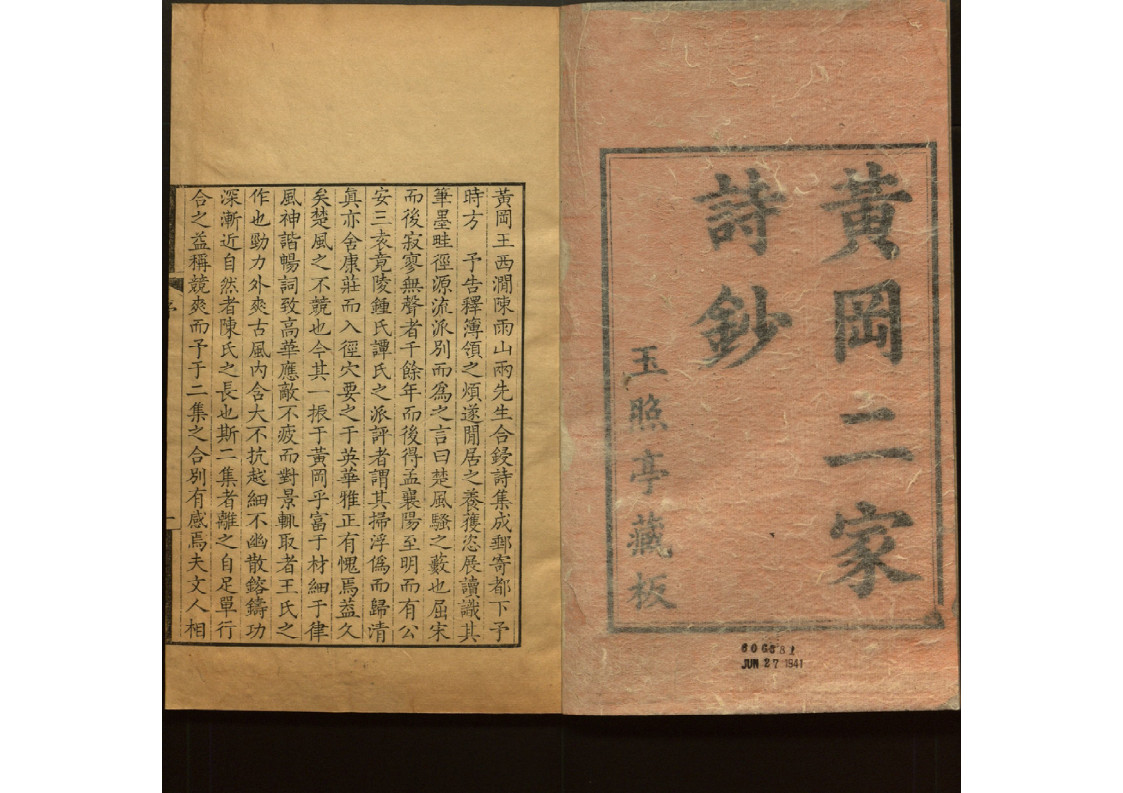 黃岡二家
詩鈔
玉照亭藏板
606681
JUN 27 1941
黃岡王西澗陳雨山兩先生合鋟詩集成郵寄都下予
時方　予告釋簿領之煩遂閒居之養獲恣展讀識其
筆墨畦徑源流派別而爲之言曰楚風騷之藪也屈宋
而後寂寥無聲者千餘年而後得孟襄陽至明而有公
安三袁竟陵鍾氏譚氏之派評者謂其掃浮僞而歸清
眞亦舍康莊而入徑穴要之于英華雅正有愧焉葢久
矣楚風之不競也今其一振于黃岡乎富于材細于律
風神諧暢詞致高華應敵不疲而對景輒取者王氏之
作也勁力外爽古風内含大不抗越細不幽散鎔鑄功
深漸近自然者陳氏之長也斯二集者離之自足單行
合之益稱競爽而予于二集之合別有感焉夫文人相
序
一